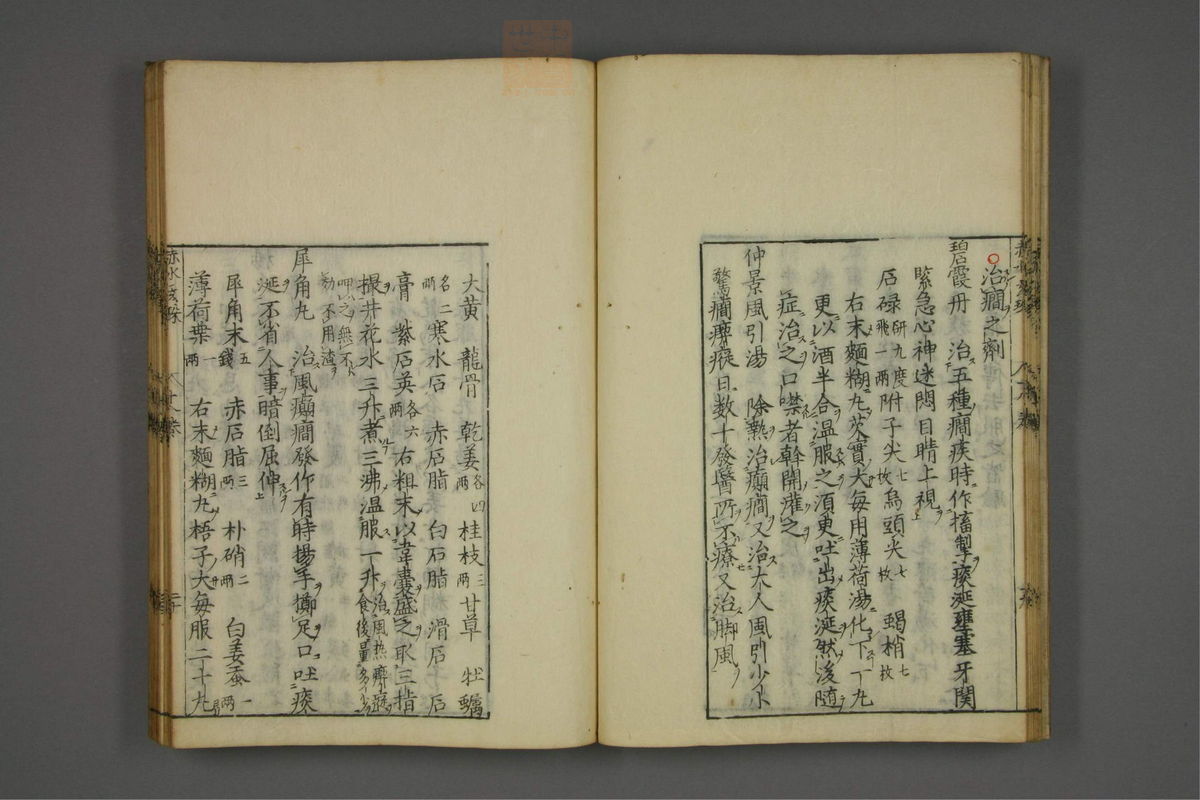 治癎之劑
碧霞丹 治五種癎疾時作搐掣痰涎壅塞牙関
緊急心神迷悶目睛上視
石碌研九度飛一兩附子尖七枚烏頭尖七枚 蝎梢七枚
右末麵糊丸芡實大每用薄荷湯化下一丸
更以酒半合温服之須更吐出痰涎然後随
症治之口噤者幹開灌之
仲景風引湯 除熱治癲癎又治大人風引少小
驚癎瘈瘲日数十發醫所不療又治脚風
大黄 龍骨 乾姜各四兩 桂枝三兩 甘草 牡蠣
各二兩寒水石 赤石脂 白石脂 滑石 石
膏 紫石英各六兩 右粗末以韋囊盛之取三指
撮井花水三升煮三沸温服一升治風热瘛瘲食後量多少
呷之無不効不用渣
犀角丸 治風癲癎發作有時揚手擲足口吐痰
涎不省人事暗倒屈伸
犀角末五錢 赤石脂三兩 朴硝二兩 白姜蚕一兩
薄荷葉一兩 右末麵糊丸梧子大每服二十丸
赤水玄珠